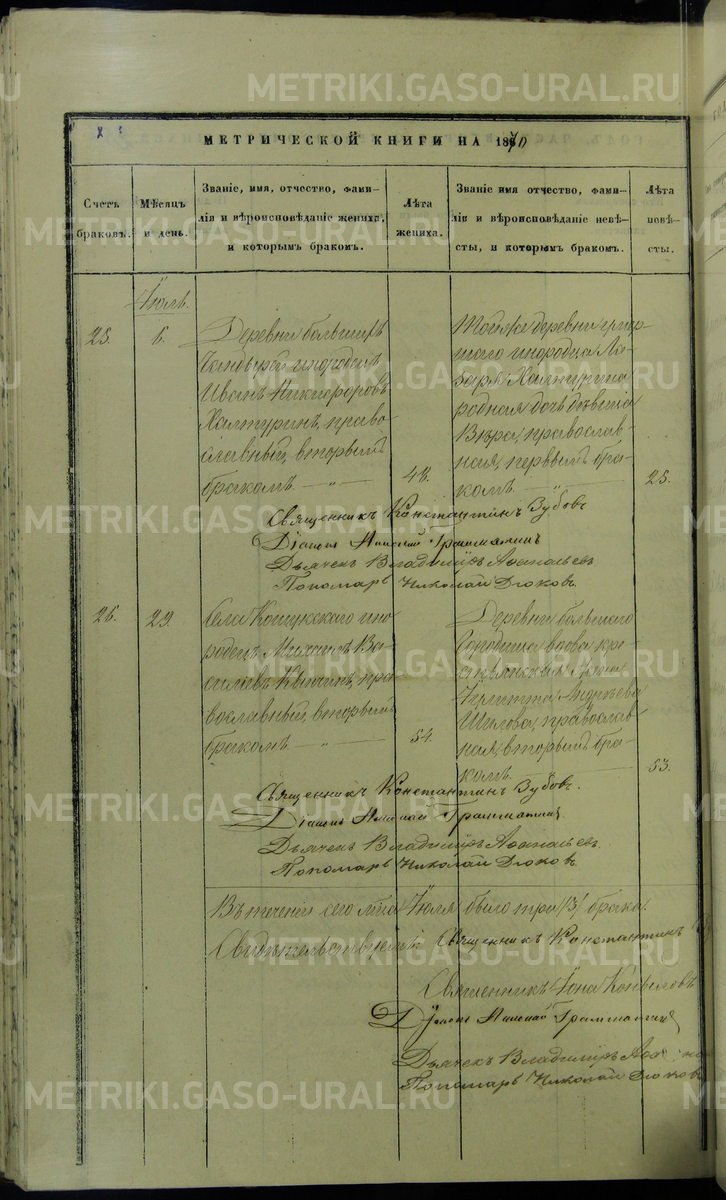 METRIKI.GASO-URAL.RU
МЕТРИЧЕСКОЙ КНИГИ НА 1870
Счетъ браковъ.
Мѣсяцъ и день.
Званіе, имя, отчество, фами-
лія и вѣроисповѣданіе жениха,
и которымъ бракомъ.
Лѣта жениха.
Званіе имя отчество, фами-
лія и вѣроисповѣданіе невѣ-
сты, и которымъ бракомъ.
Лѣта невѣ-
сты.
Іюль.
25.
6.
Деревни большихъ
инородецъ
Иванъ Никифоровъ
Халтуринъ, право-
славный, вторымъ
бракомъ
48.
Той же деревни
инородца
Халтурина
родная дочь дѣвица
Вѣра, православ-
ная, первымъ бра-
комъ.
25.
Священникъ Константинъ Зубовъ
Діаконъ Грамматинъ
Дьячекъ Владиміръ Аѳанасьевъ
Пономарь Николай Дюковъ
26.
29.
Села Кошукскаго ино-
родецъ Михаилъ Ва-
сильевъ пра-
вославный, вторымъ
бракомъ
54.
Деревни большаго
вдова кре-
стьянская жена
Андреева
Шилова, православ-
ная, вторымъ бра-
комъ.
53.
Священникъ Константинъ Зубовъ.
Діаконъ Грамматинъ
Дьячекъ Владиміръ Аѳанасьевъ
Пономарь Николай Дюковъ
Въ теченіи сего Іюля было три /3/ брака.
Священникъ Константинъ
Священникъ Іона
Діаконъ Грамматинъ
Дьячекъ Владиміръ
Пономарь Николай Дюковъ